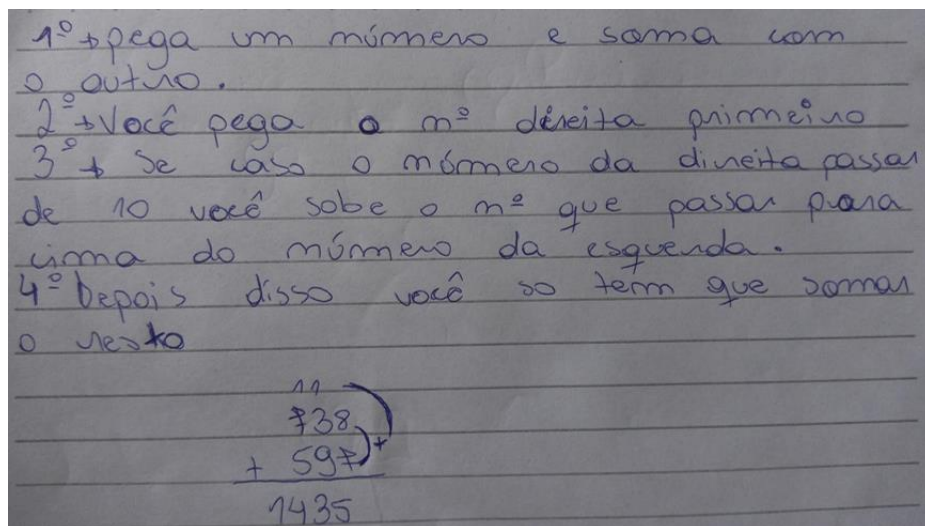 1º → pega um número e soma com
o outro.
2º → Você pega o nº direita primeiro
3º → Se caso o número da direita passar
de 10 você sobe o nº que passar para
cima do número da esquerda.
4º Depois disso você so tem que somar
o resto
11
738
+ 597 +
1435